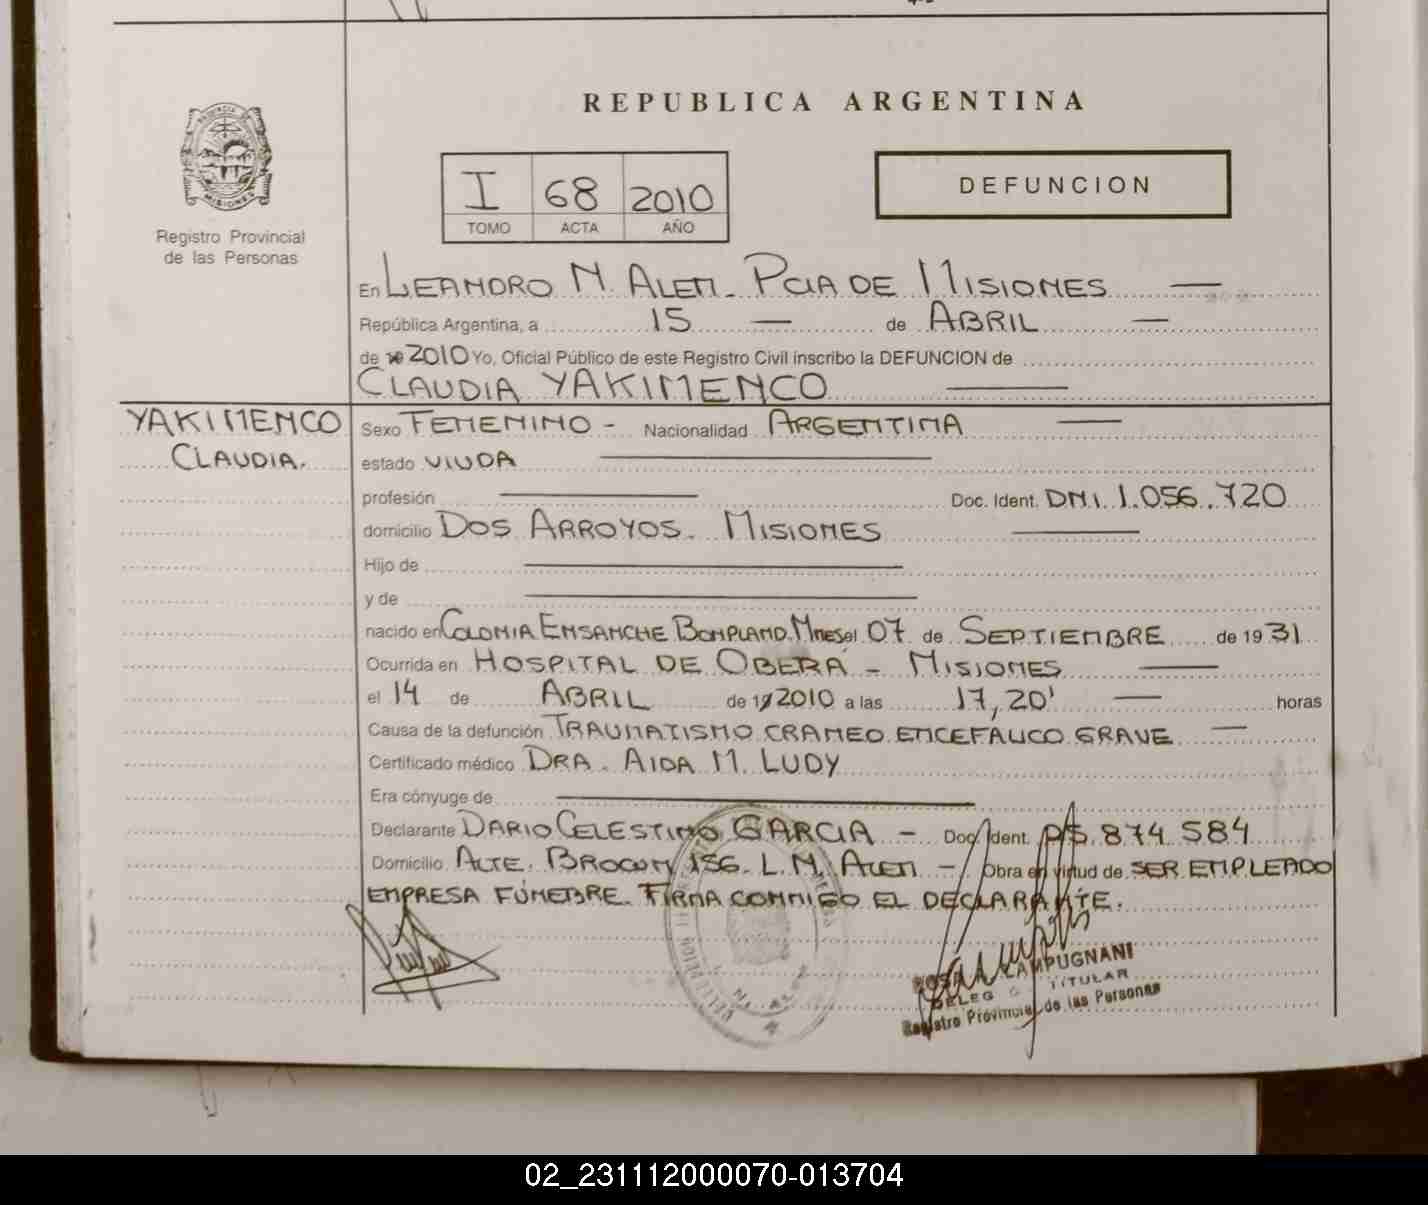 REPUBLICA ARGENTINA
I 68 2010
TOMO ACTA AÑO
DEFUNCION
PROVINCIA DE MISIONES
Registro Provincial
de las Personas
En LEANDRO N. ALEM. PCIA DE MISIONES
República Argentina, a 15 de ABRIL
de 19 2010 Yo, Oficial Público de este Registro Civil inscribo la DEFUNCION de
CLAUDIA YAKIMENCO
YAKIMENCO
CLAUDIA.
Sexo FEMENINO - Nacionalidad ARGENTINA
estado VIUDA
profesión Doc. Ident. DNI. 1.056.720
domicilio DOS ARROYOS. MISIONES
Hijo de
y de
nacido en COLONIA ENSANCHE BONPLAND. Mnes el 07 de SEPTIEMBRE de 19 31
Ocurrida en HOSPITAL DE OBERÁ - MISIONES
el 14 de ABRIL de 19 2010 a las 17,20' horas
Causa de la defunción TRAUMATISMO CRANEO ENCEFALICO GRAVE
Certificado médico DRA. AIDA M. LUDY
Era cónyuge de
Declarante DARIO CELESTINO GARCIA - Doc. Ident. 874.584
Domicilio ALTE. BROWN 156. L. N. ALEM - Obra en virtud de SER EMPLEADO
EMPRESA FÚNEBRE. FIRMA CONMIGO EL DECLARANTE.
ROSA LAMPUGNANI
TITULAR
Registro Provincial de las Personas
02_231112000070-013704